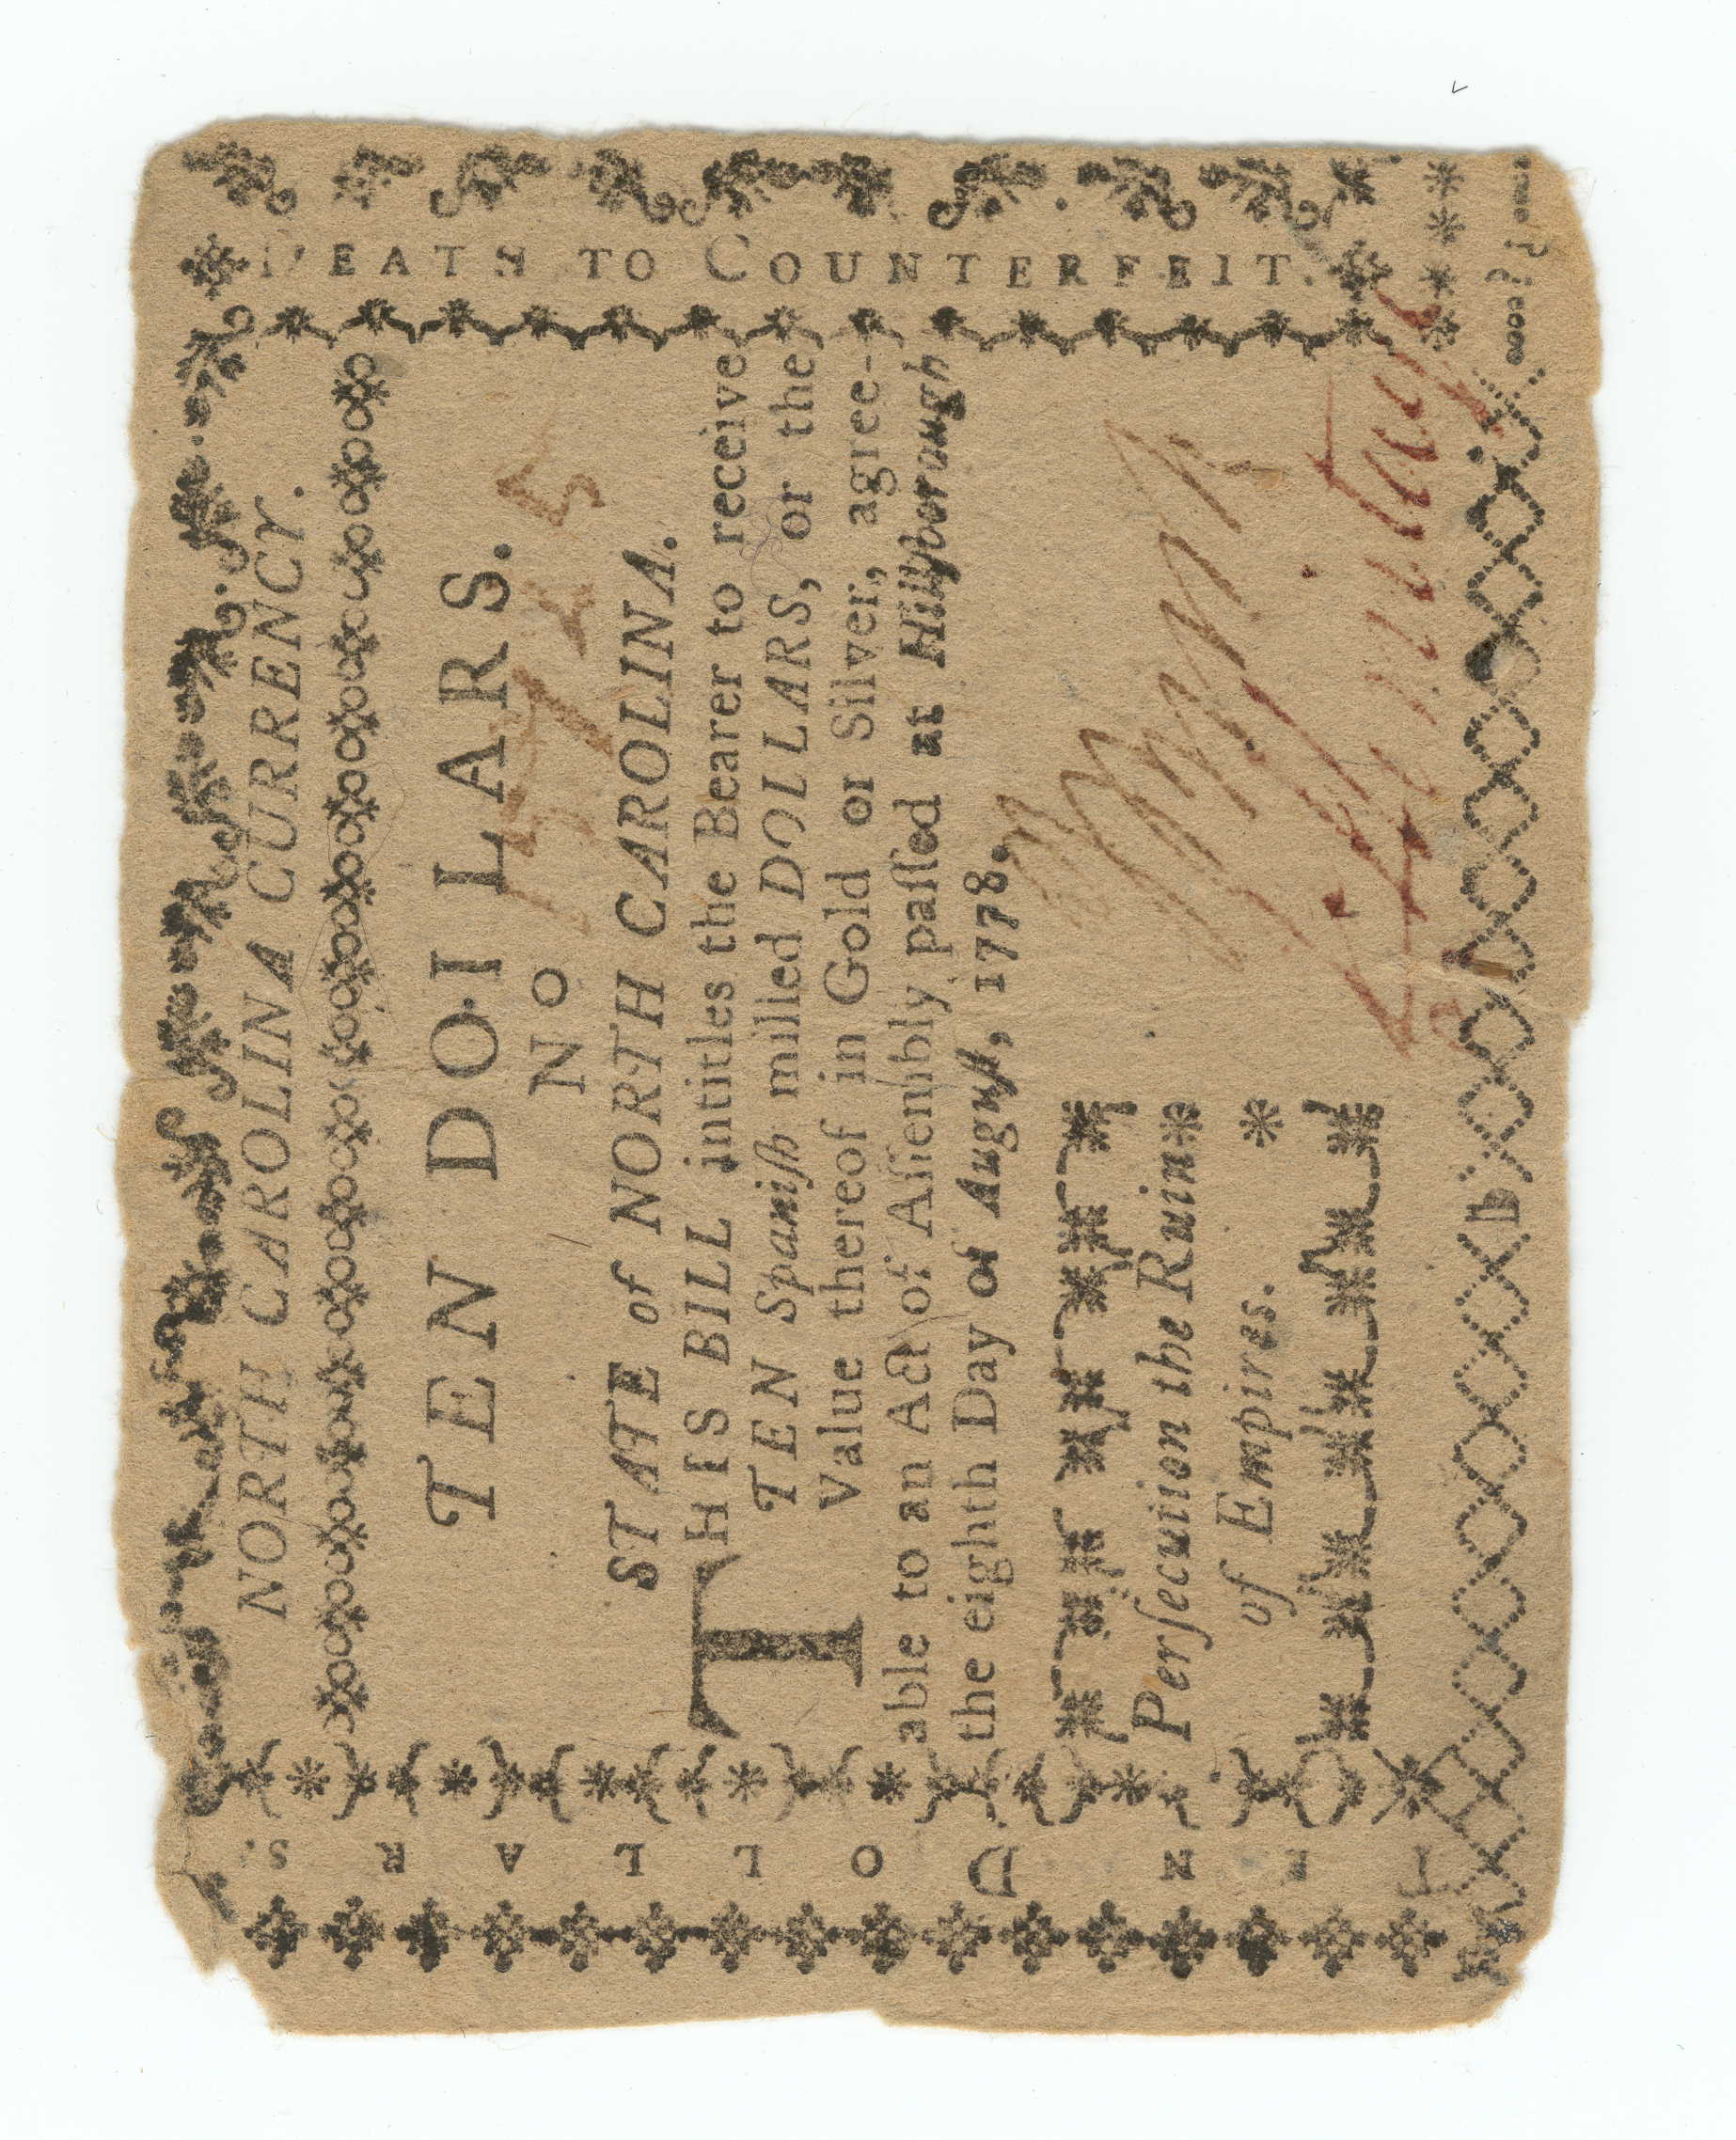 NORTH CAROLINA CURRENCY.
TEN DOLLARS.
No 5725
STATE of NORTH CAROLINA.
THIS BILL intitles the Bearer to receive
TEN Spaniſh milled DOLLARS, or the
Value thereof in Gold or Silver, agree-
able to an Act of Aſſembly paſſed at Hillſborough
the eighth Day of Auguſt, 1778.
Perſecution the Ruin
of Empires.
DEATH TO COUNTERFEIT.
TEN DOLLARS.